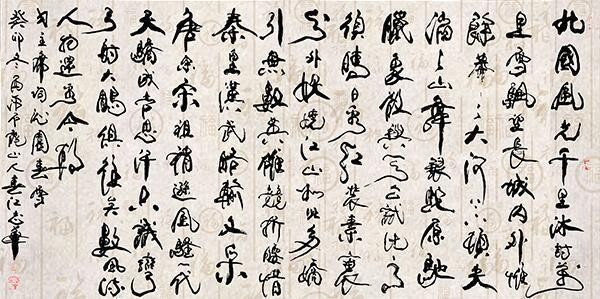 北國風光千里冰封萬
里雪飄望長城內外惟
餘莽々大河上下頓失
滔々山舞銀蛇原馳
臘象欲與天公試比高
須晴日看紅裝素裹
分外妖嬈江山如此多嬌
引無數英雄競折腰惜
秦皇漢武略輸文采
唐宗宋祖稍遜風騷一代
天驕成吉思汗只識彎
弓射大鵰俱往矣數風流
人物還看今朝
毛主席詞沁園春雪
癸卯冬月山人春江志華